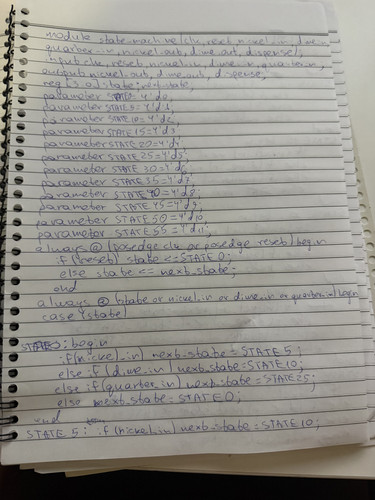 module state_machine(clk, reset, nickel_in, dime_in,
quarter_in, nickel_out, dime_out, dispense);
input clk, reset, nickel_in, dime_in, quarter_in;
output nickel_out, dime_out, dispense;
reg [3:0] state, next_state;
parameter STATE0 = 4'd0;
parameter STATE5 = 4'd1;
parameter STATE10 = 4'd2;
parameter STATE15 = 4'd3;
parameter STATE20 = 4'd4;
parameter STATE 25 = 4'd5;
parameter STATE 30 = 4'd6;
parameter STATE 35 = 4'd7;
parameter STATE 40 = 4'd8;
parameter STATE 45 = 4'd9;
parameter STATE 50 = 4'd10;
parameter STATE 55 = 4'd11;
always @ (posedge clk or posedge reset) begin
if (reset) state <= STATE 0;
else state <= next_state;
end
always @ (state or nickel_in or dime_in or quarter_in) begin
case (state)
STATE0: begin
if (nickel_in) next_state = STATE 5;
else if (dime_in) next_state = STATE 10;
else if (quarter_in) next_state = STATE 25;
else next_state = STATE 0;
end
STATE 5: if (nickel_in) next_state = STATE 10;